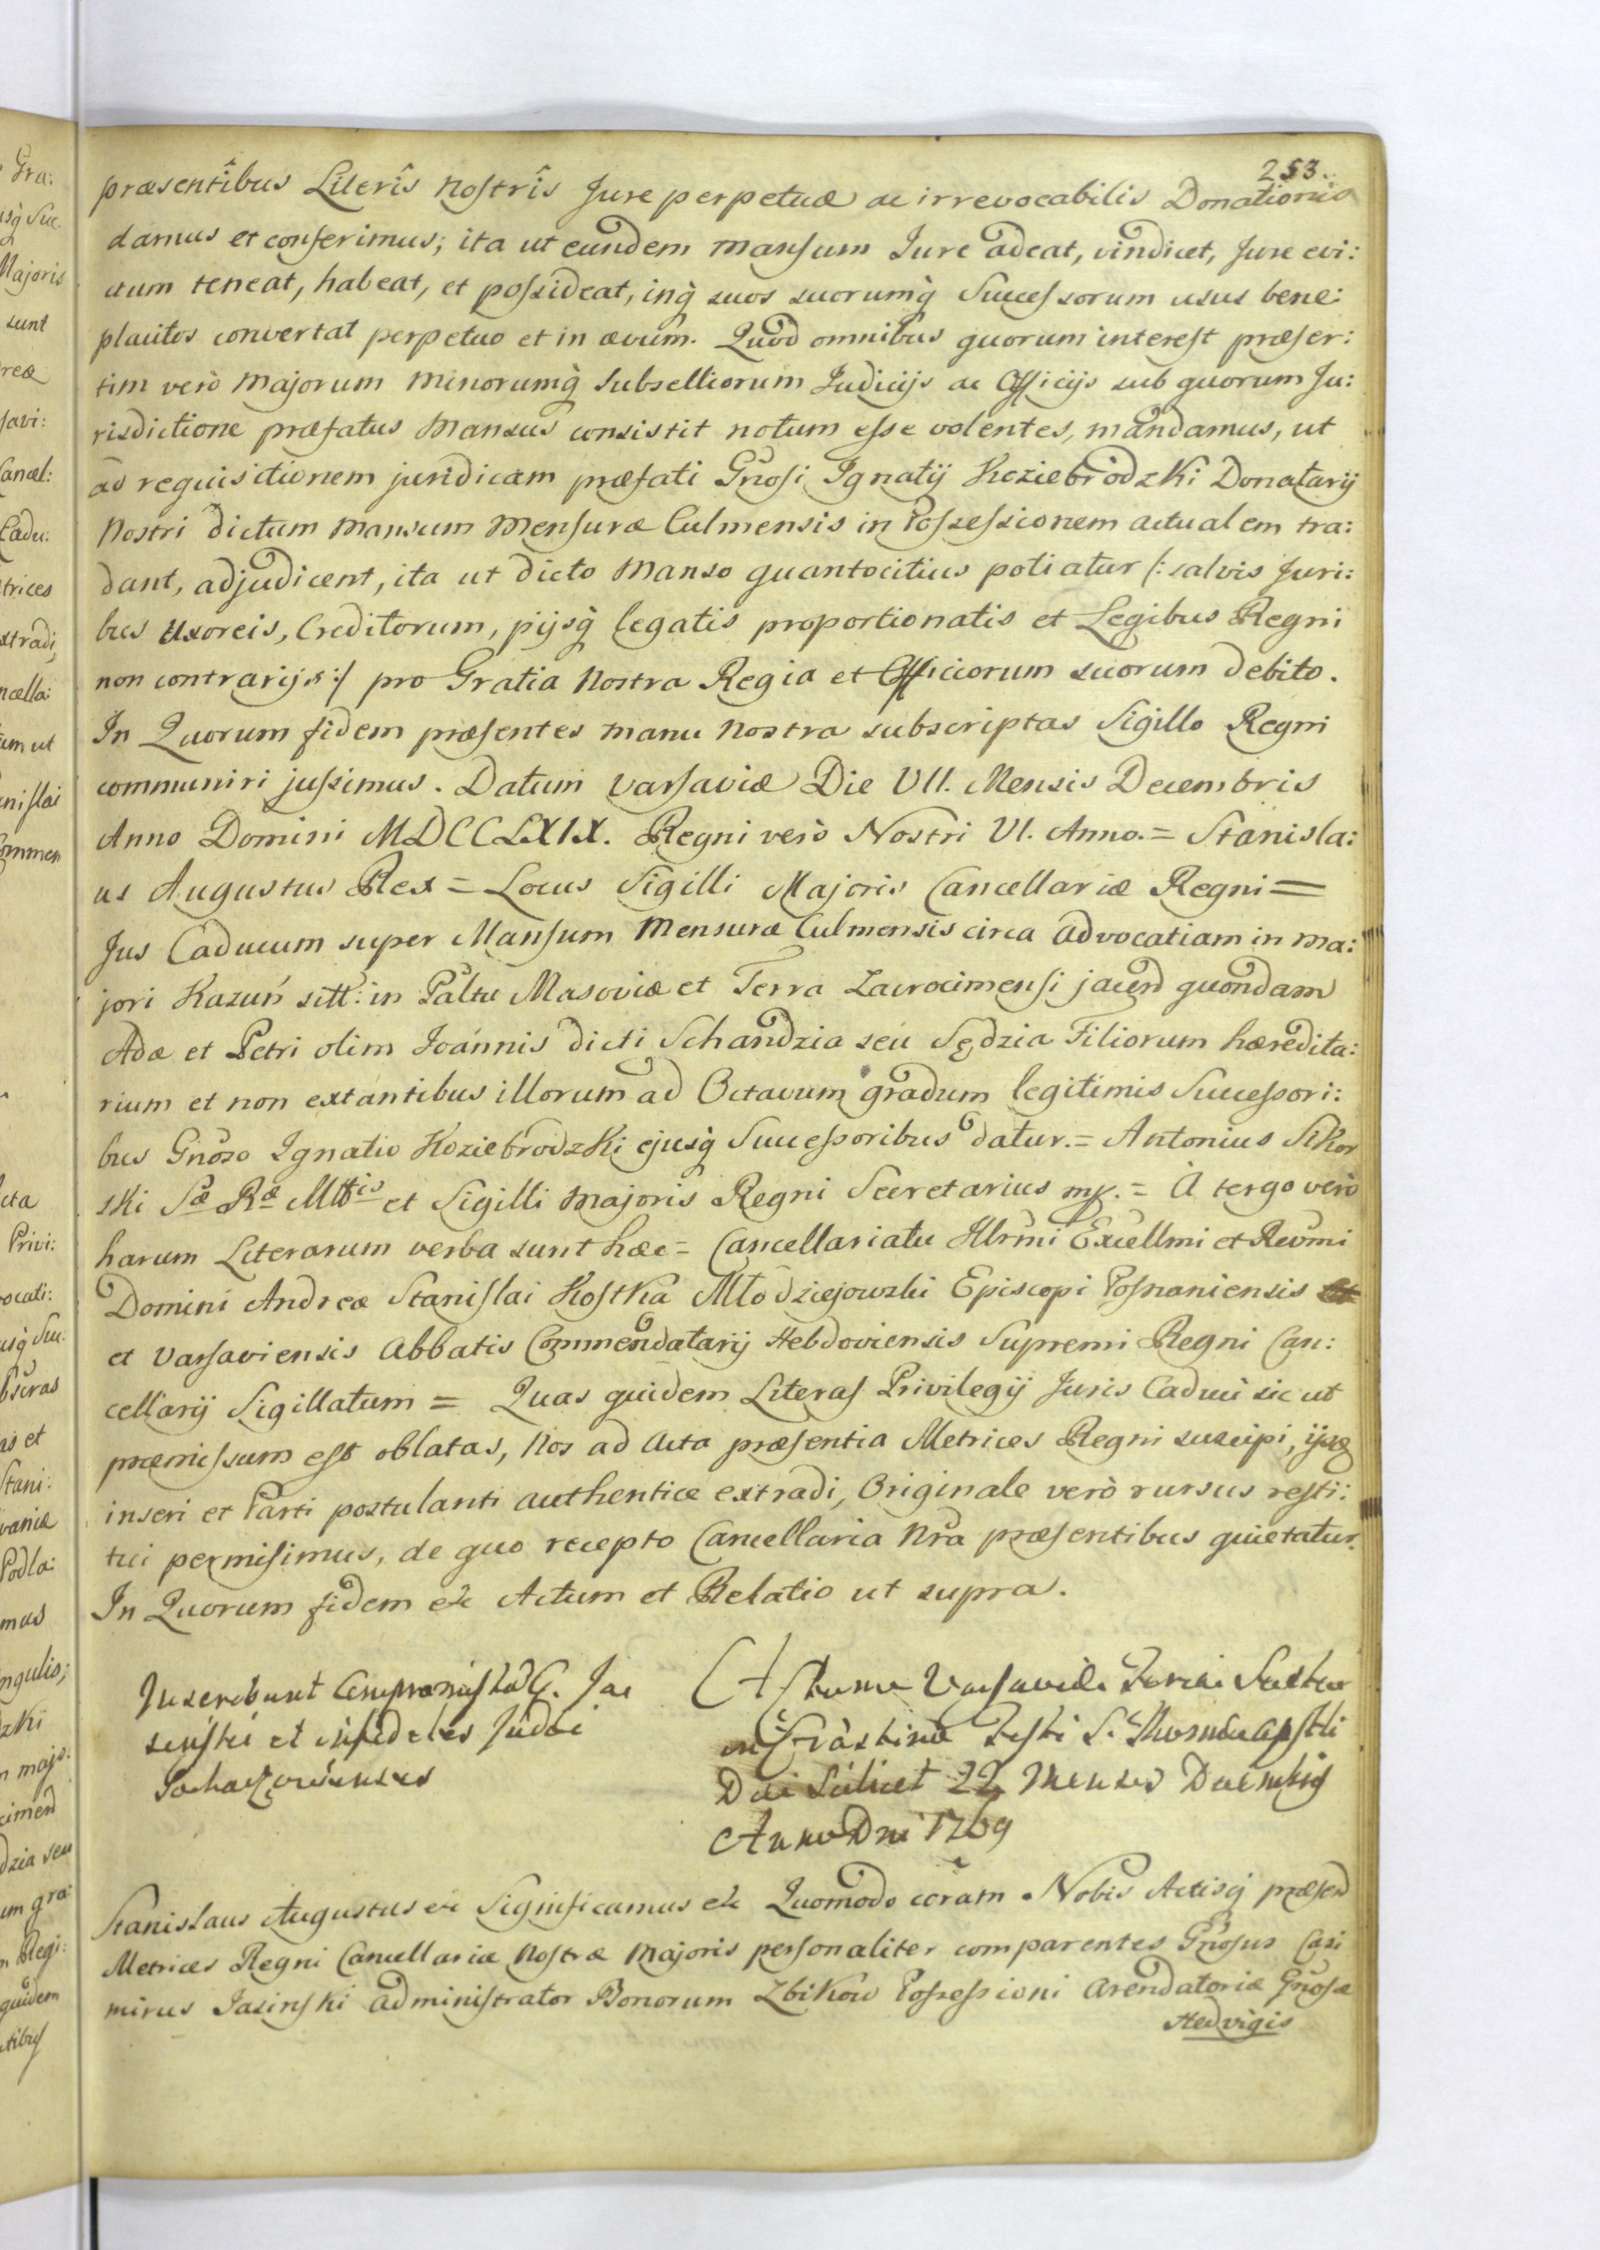 253.
præsentibus Literis Nostris Jure perpetuæ ac irrevocabilis Donationis
damus et conferimus; ita ut eundem mansum Jure adeat, vindicet, Jure evi:
ctum teneat, habeat, et possideat, inq̃ suos suorumq̃ Successorum usus bene:
placitos convertat perpetuo et in ævum. Quod omnibus quorum interest præser:
tim verò Majorum Minorumq̃ Subselliorum Judicijs ac Officijs sub quorum Ju:
risdictione præfatus Mansus consistit notum esse volentes, mandamus, ut
ad requisitionem juridicam præfati Gnosi Ignatij Koziebrodzki Donatarij
Nostri dictum Mansum Mensuræ Culmensis in Possessionem actualem tra:
dant, adjudicent, ita ut dicto Manso quantocitius potiatur /: salvis Juri:
bus Uxoreis, Creditorum, pijsq̃ legatis proportionatis et Legibus Regni
non contrarijs :/ pro Gratia Nostra Regia et Officiorum suorum debito.
In Quorum fidem præsentes manu Nostra subscriptas Sigillo Regni
communiri jussimus. Datum Varsaviæ Die VII. Mensis Decembris
Anno Domini MDCCLXIX. Regni verò Nostri VI. Anno. = Stanisla:
us Augustus Rex = Locus Sigilli Majoris Cancellariæ Regni =
Jus Caducum super Mansum Mensuræ Culmensis circa Advocatiam in Ma:
jori Kazuń sitt: in Paltu Masoviæ et Terra Zacrocimensi jacend quondam
Adæ et Petri olim Joánnis dicti Schandzia seu Sędzia Filiorum hæredita:
rium et non extantibus illorum ad Octavum gradum legitimis Successori:
bus Gnoso Ignatio Koziebrodzki ejusq̃ Successoribus datur. = Antonius Sikor
ski Sæ Ræ Mttis et Sigilli Majoris Regni Secretarius mp. = A tergo verò
harum Literarum verba sunt hæc = Cancellariatu Illrmi Excellmi et Reverendmi
Domini Andreæ Stanislai Kostka Młodziejowski Episcopi Posnaniensis
et Varsaviensis Abbatis Commendatarij Hebdoviensis Supremi Regni Can:
cellarij Sigillatum = Quas quidem Literas Privilegij Juris Caduci sic ut
præmissum est oblatas, Nos ad Acta præsentia Metrices Regni suscipi, ijsq
inseri et Parti postulanti authenticæ extradi, Originale verò rursus resti:
tui permisimus, de quo recepto Cancellaria Nra præsentibus quietatur.
In Quorum fidem etc Actum et Relatio ut supra.
Inscribunt G. Ja
sinski et infideles Judei
Sochaczovienses
Actum Varsaviæ Feria Sexta
in Crastino Festi S. Thomæ Apstli
Die Scilicet 22 Mensis Decembris
Anno Dni 1769
Stanislaus Augustus etc Significamus etc Quomodo coram Nobis Actisq̃ præsen
Metrices Regni Cancellariæ Nostræ Majoris personaliter comparentes Gnosus Casi
mirus Jasinski Administrator Bonorum Zbikow Possessioni Arendatoriæ Gnosæ
Hedvigis